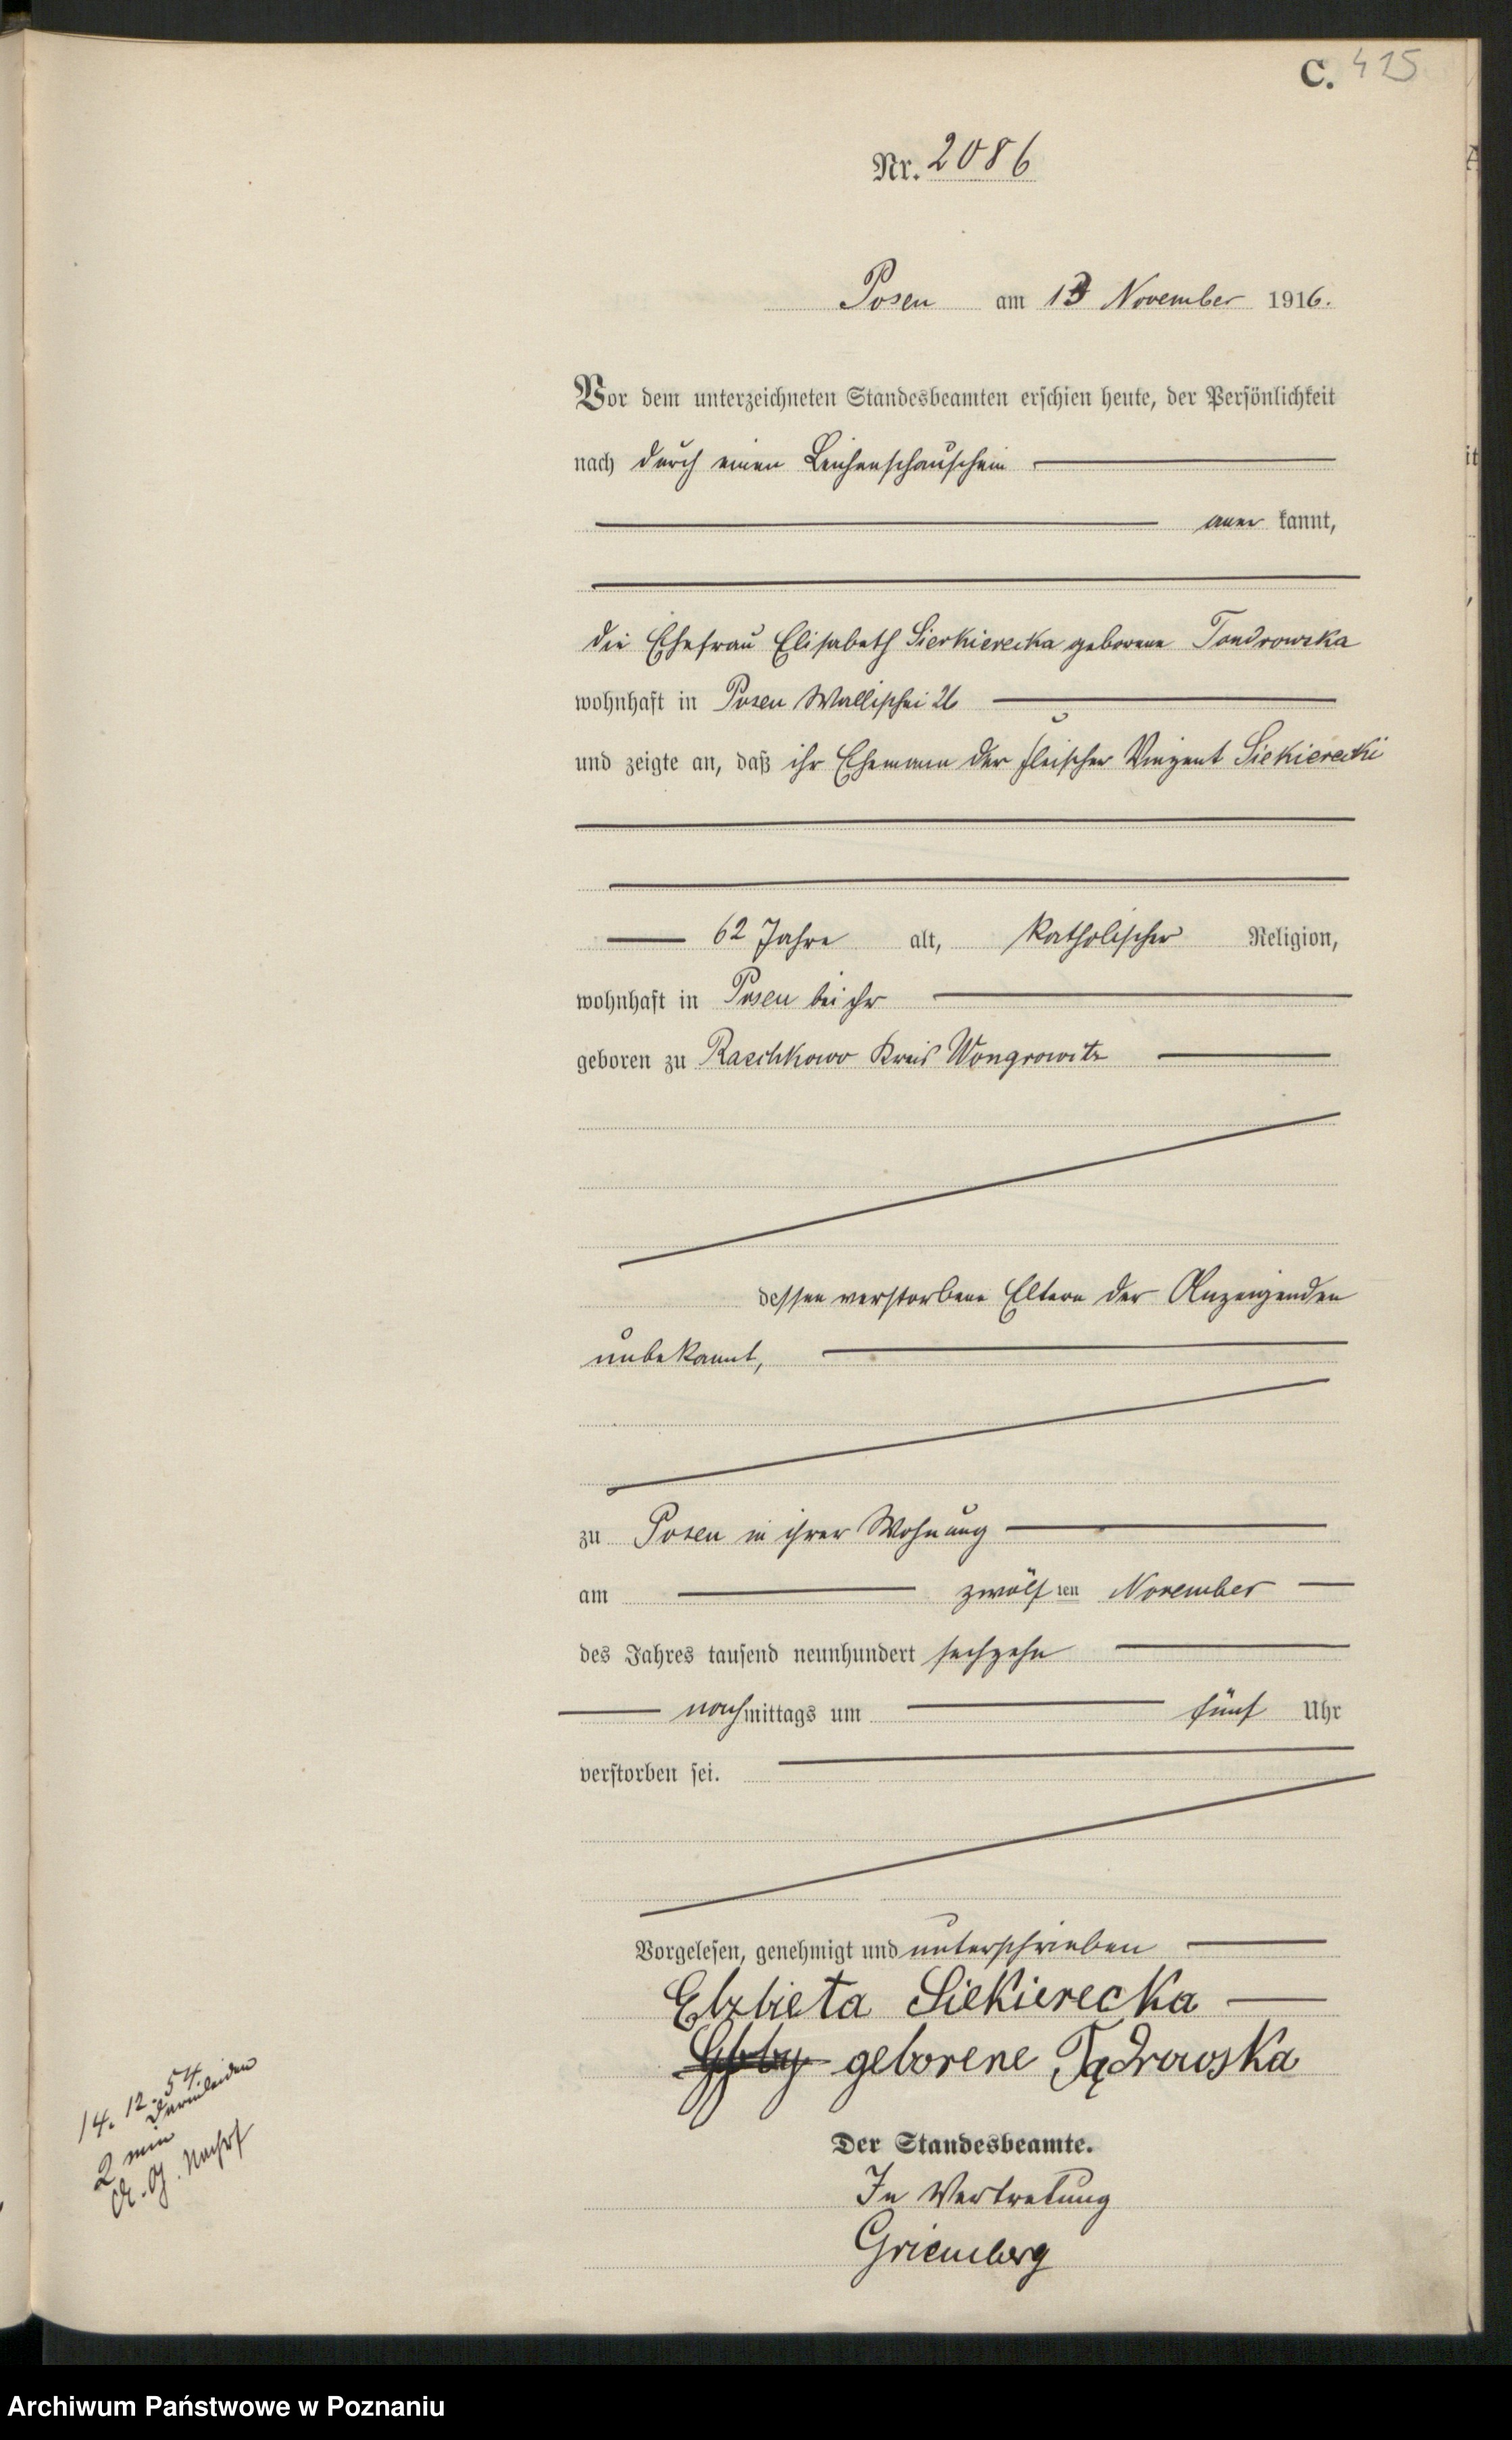 C. 415
Nr. 2086
Posen am 13 November 1916.
Vor dem unterzeichneten Standesbeamten erschien heute, der Persönlichkeit
nach durch einen Leichenschauschein
aner kannt,
die Ehefrau Elisabeth Sierkierecka geborene Tondrowska
wohnhaft in Posen Wallischei 26
und zeigte an, daß ihr Ehemann der Fleischer Vinzent Siekierecki
62 Jahre alt, katholischer Religion,
wohnhaft in Posen bei ihr
geboren zu Raschkowo Kreis Wongrowitz
dessen verstorbene Eltern der Anzeigenden
unbekannt,
zu Posen in ihrer Wohnung
am zwölf ten November
des Jahres tausend neunhundert sechzehn
nachmittags um fünf Uhr
verstorben sei.
Vorgelesen, genehmigt und unterschrieben
Elzbieta Siekierecka
geborene Tądrowska
14. 12. 54.
Darmleiden
2 min
Der Standesbeamte.
In Vertretung
Griemberg
Archiwum Państwowe w Poznaniu